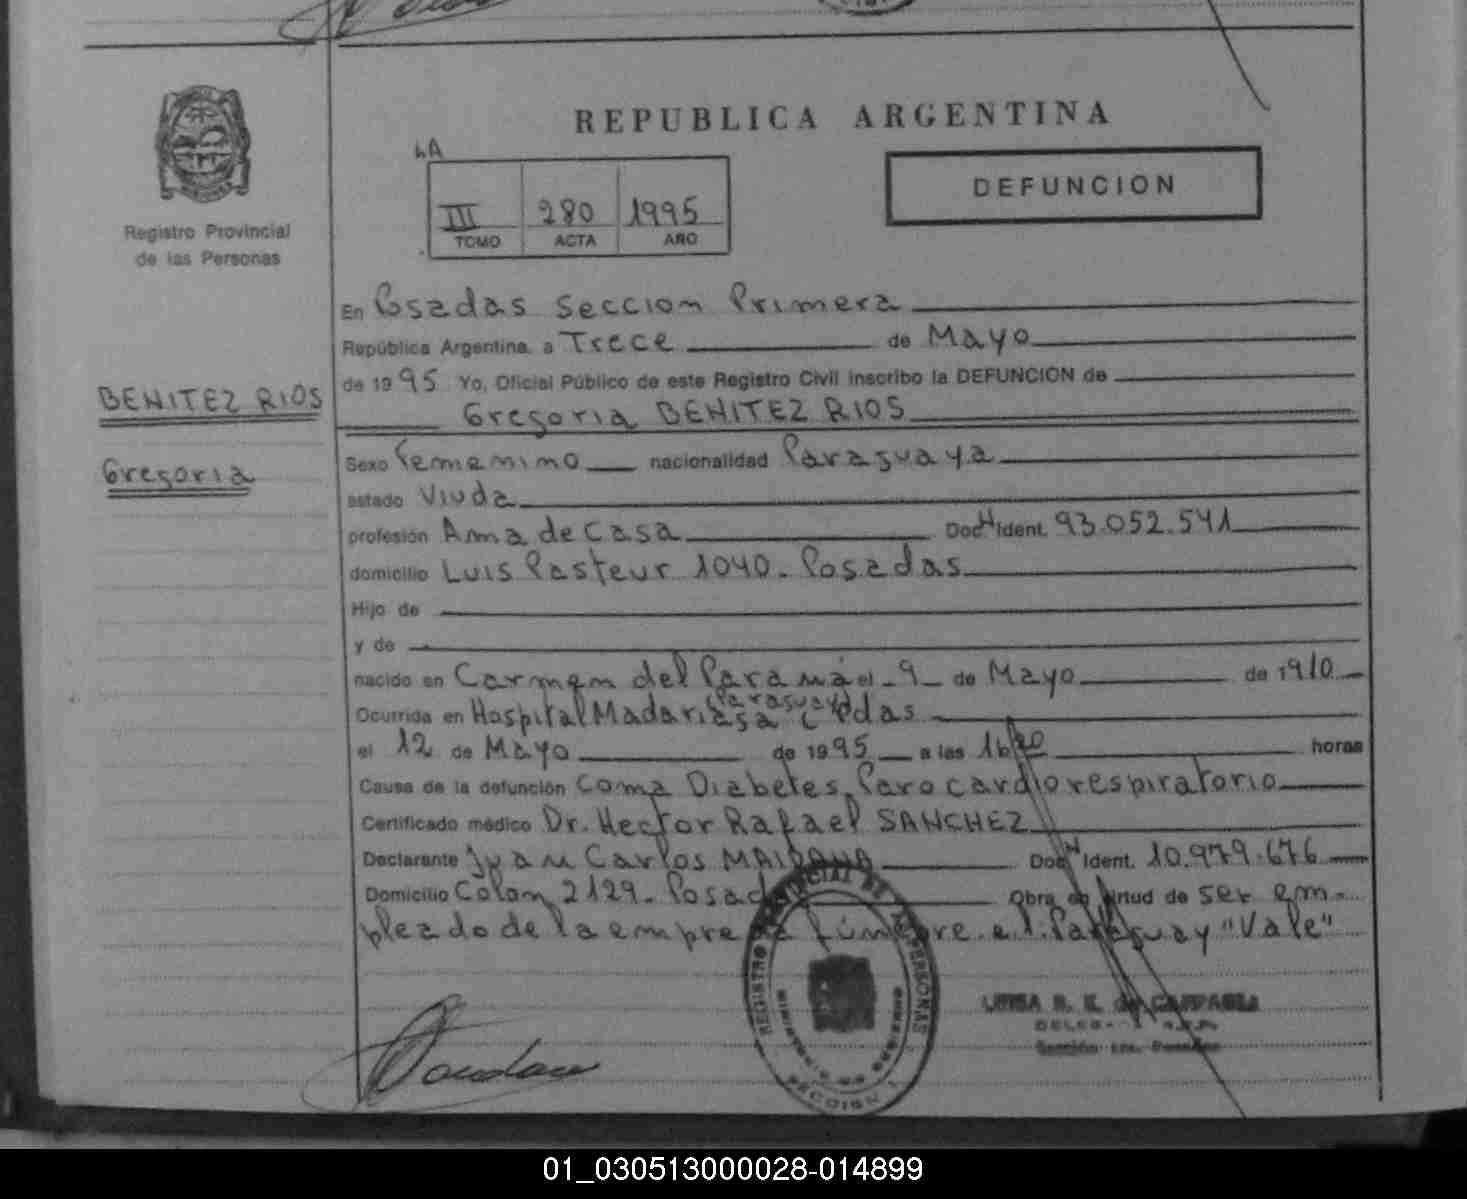 REPUBLICA ARGENTINA
LA
III 280 1995
TOMO ACTA AÑO
DEFUNCION
Registro Provincial
de las Personas
BENITEZ RIOS
Gregoria
En Posadas Seccion Primera
República Argentina, a Trece de Mayo
de 1995 Yo, Oficial Público de este Registro Civil inscribo la DEFUNCION de
Gregoria BENITEZ RIOS
Sexo Femenino nacionalidad Paraguaya
estado Viuda
profesión Ama de Casa Doc. Ident. 93.052.541
domicilio Luis Pasteur 1040. Posadas
Hijo de
y de
nacido en Carmen del Paraná el 9 de Mayo de 1910
(Paraguay)
Ocurrida en Hospital Madariaga Pdas
el 12 de Mayo de 1995 a las horas
Causa de la defunción Coma Diabetes, Paro cardiorespiratorio
Certificado médico Dr. Hector Rafael SANCHEZ
Declarante Juan Carlos MAIDANA Doc. Ident. 10.979.676
Domicilio Colon 2129. Posadas Obra en virtud de ser em-
pleado de la empresa fúnebre el Paraguay "Vale"
REGISTRO PROVINCIAL DE LAS PERSONAS
SECCION 1
01_030513000028-014899